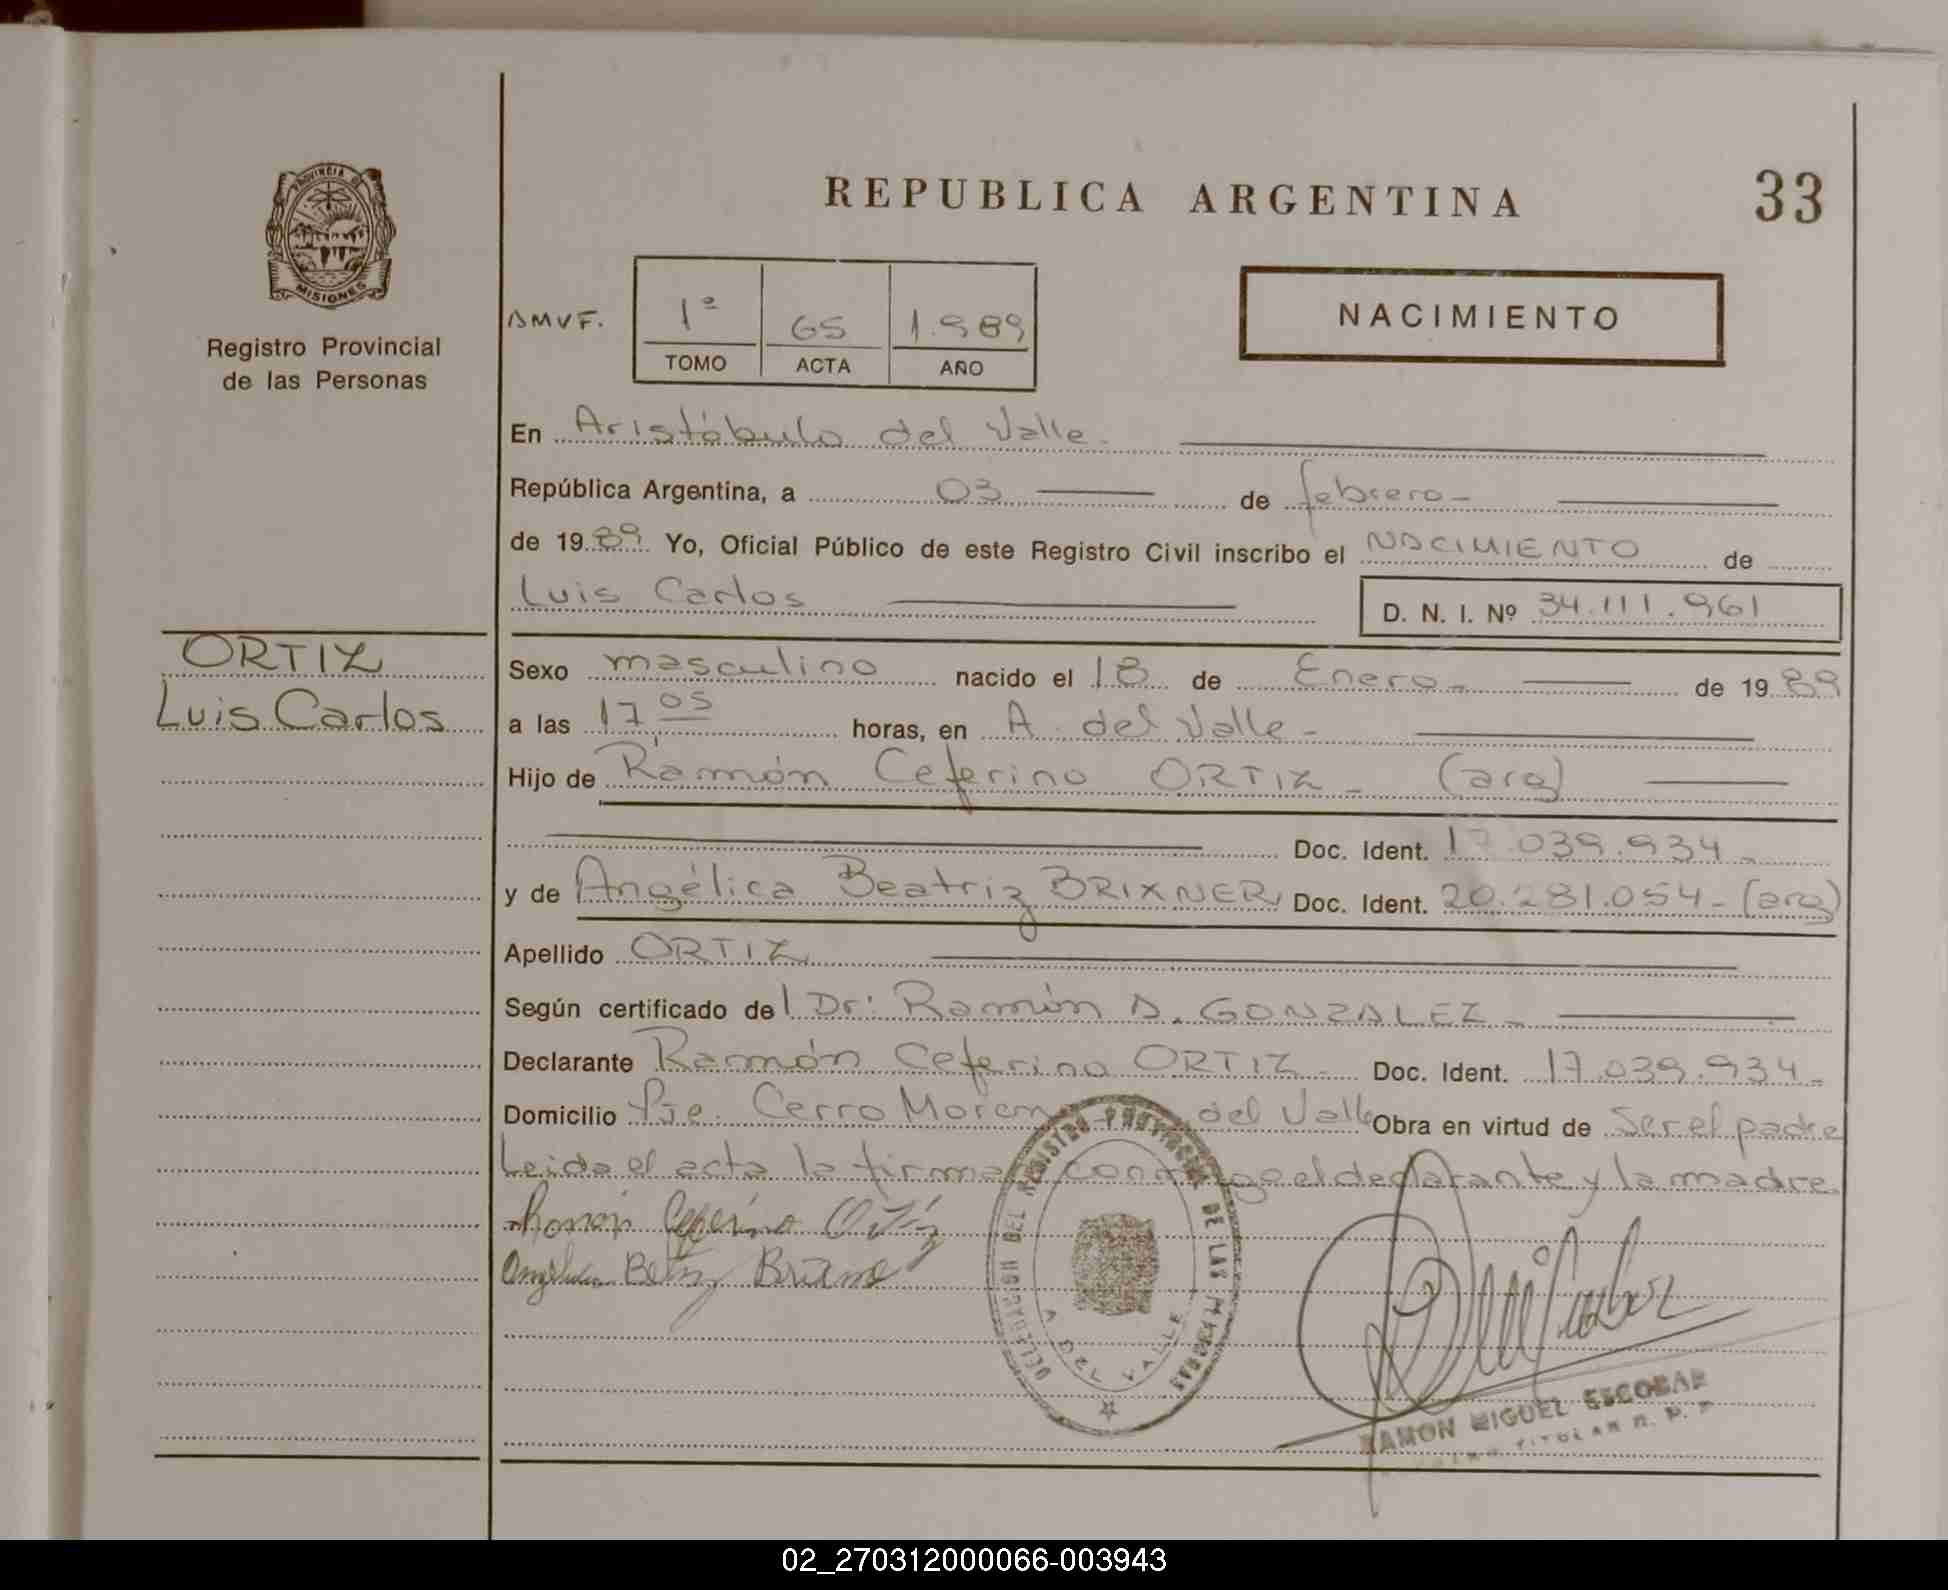 REPUBLICA ARGENTINA
33
PROVINCIA DE
MISIONES
Registro Provincial
de las Personas
1º 65 1.989
TOMO ACTA AÑO
NACIMIENTO
En Aristóbulo del Valle.
República Argentina, a 03 de febrero
de 1989 Yo, Oficial Público de este Registro Civil inscribo el NACIMIENTO de
Luis Carlos D. N. I. Nº 34.111.961
ORTIZ
Luis Carlos
Sexo masculino nacido el 18 de Enero de 1989
a las 17 05 horas, en A. del Valle
Hijo de Ramón Ceferino ORTIZ (arg)
Doc. Ident. 17.039.934
y de Angélica Beatriz BRIXNER Doc. Ident. 20.281.054 - (arg)
Apellido ORTIZ
Según certificado del Dr: Ramón A. GONZALEZ
Declarante Ramón Ceferino ORTIZ Doc. Ident. 17.039.934
Domicilio Pje. Cerro Moren del Valle Obra en virtud de Ser el padre
Leida el acta la firma conmigo el declarante y la madre
Ramón Ceferino Ortiz
DELEGACION DEL REGISTRO PROVINCIAL DE LAS PERSONAS
VALLE
RAMON MIGUEL ESCOBAR
TITULAR R. P. P.
02_270312000066-003943